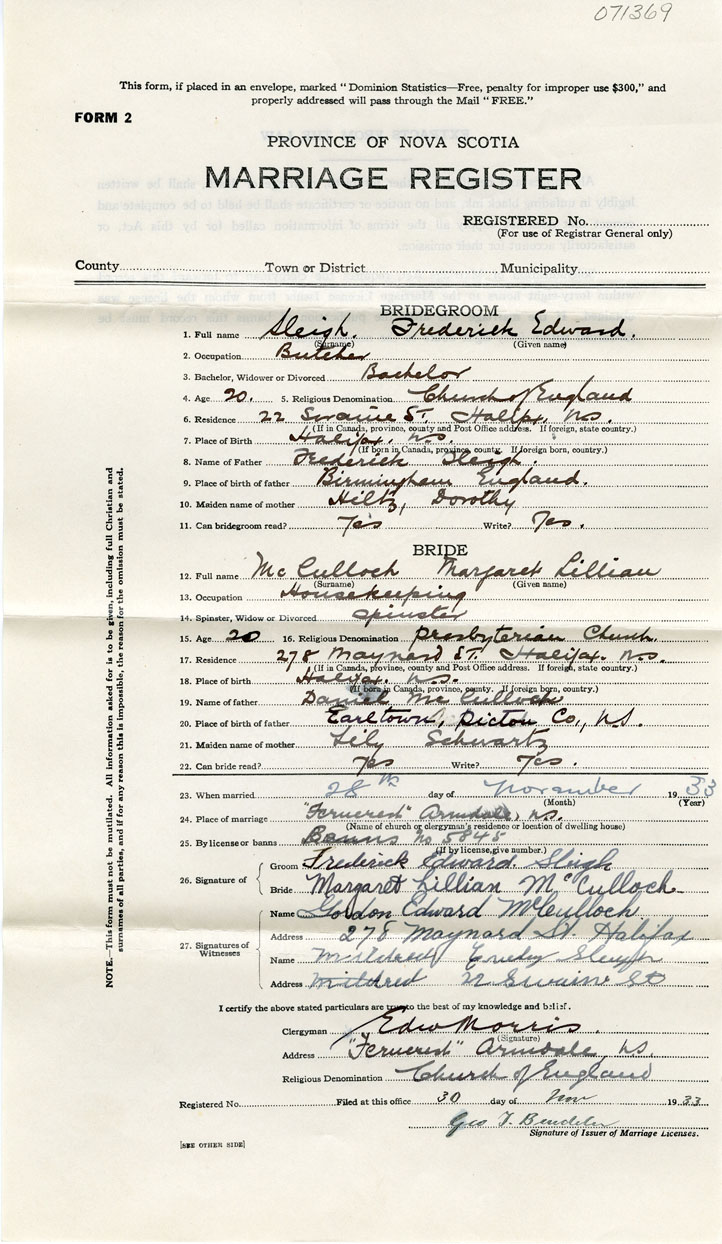 071369
This form, if placed in an envelope, marked "Dominion Statistics—Free, penalty for improper use $300," and
properly addressed will pass through the Mail "FREE."
FORM 2
PROVINCE OF NOVA SCOTIA
MARRIAGE REGISTER
REGISTERED No.
(For use of Registrar General only)
County Town or District Municipality
BRIDEGROOM
1. Full name Sleigh. Frederick Edward.
(Surname) (Given name)
2. Occupation Butcher
3. Bachelor, Widower or Divorced Bachelor
4. Age 20. 5. Religious Denomination Church of England
6. Residence 22 Swaine St. Halifax, N.S.
(If in Canada, province, county and Post Office address. If foreign, state country.)
7. Place of Birth Halifax. N.S.
(If born in Canada, province, county. If foreign born, country.)
8. Name of Father Frederick Sleigh.
9. Place of birth of father Birmingham England.
10. Maiden name of mother Hiltz, Dorothy
11. Can bridegroom read? Yes Write? Yes.
BRIDE
12. Full name McCulloch Margaret Lillian
(Surname) (Given name)
13. Occupation Housekeeping
14. Spinster, Widow or Divorced Spinster
15. Age 20 16. Religious Denomination Presbyterian Church.
17. Residence 278 Maynard St. Halifax. N.S.
(If in Canada, province, county and Post Office address. If foreign, state country.)
18. Place of birth Halifax. N.S.
(If born in Canada, province, county. If foreign born, country.)
19. Name of father Daniel McCulloch
20. Place of birth of father Earltown, Pictou Co., N.S.
21. Maiden name of mother Lily Schwartz
22. Can bride read? Yes Write? Yes.
23. When married 28th day of November 1933
(Month) (Year)
24. Place of marriage "Ferncrest" Armdale, N.S.
(Name of church or clergyman's residence or location of dwelling house)
25. By license or banns No 5848
(If by license, give number.)
26. Signature of
Groom Frederick Edward Sleigh
Bride Margaret Lillian McCulloch
27. Signatures of Witnesses
Name Gordon Edward McCulloch
Address 278 Maynard St. Halifax
Name Mildred
Address Mildred 22 Swaine St
I certify the above stated particulars are true to the best of my knowledge and belief.
Clergyman Edw Morris.
(Signature)
Address "Ferncrest" Armdale, N.S.
Religious Denomination Church of England
Registered No. Filed at this office 30 day of Nov 1933
Geo T.
Signature of Issuer of Marriage Licenses.
[SEE OTHER SIDE]
NOTE.—This form must not be mutilated. All information asked for is to be given, including full Christian and
surnames of all parties, and if for any reason this is impossible, the reason for the omission must be stated.